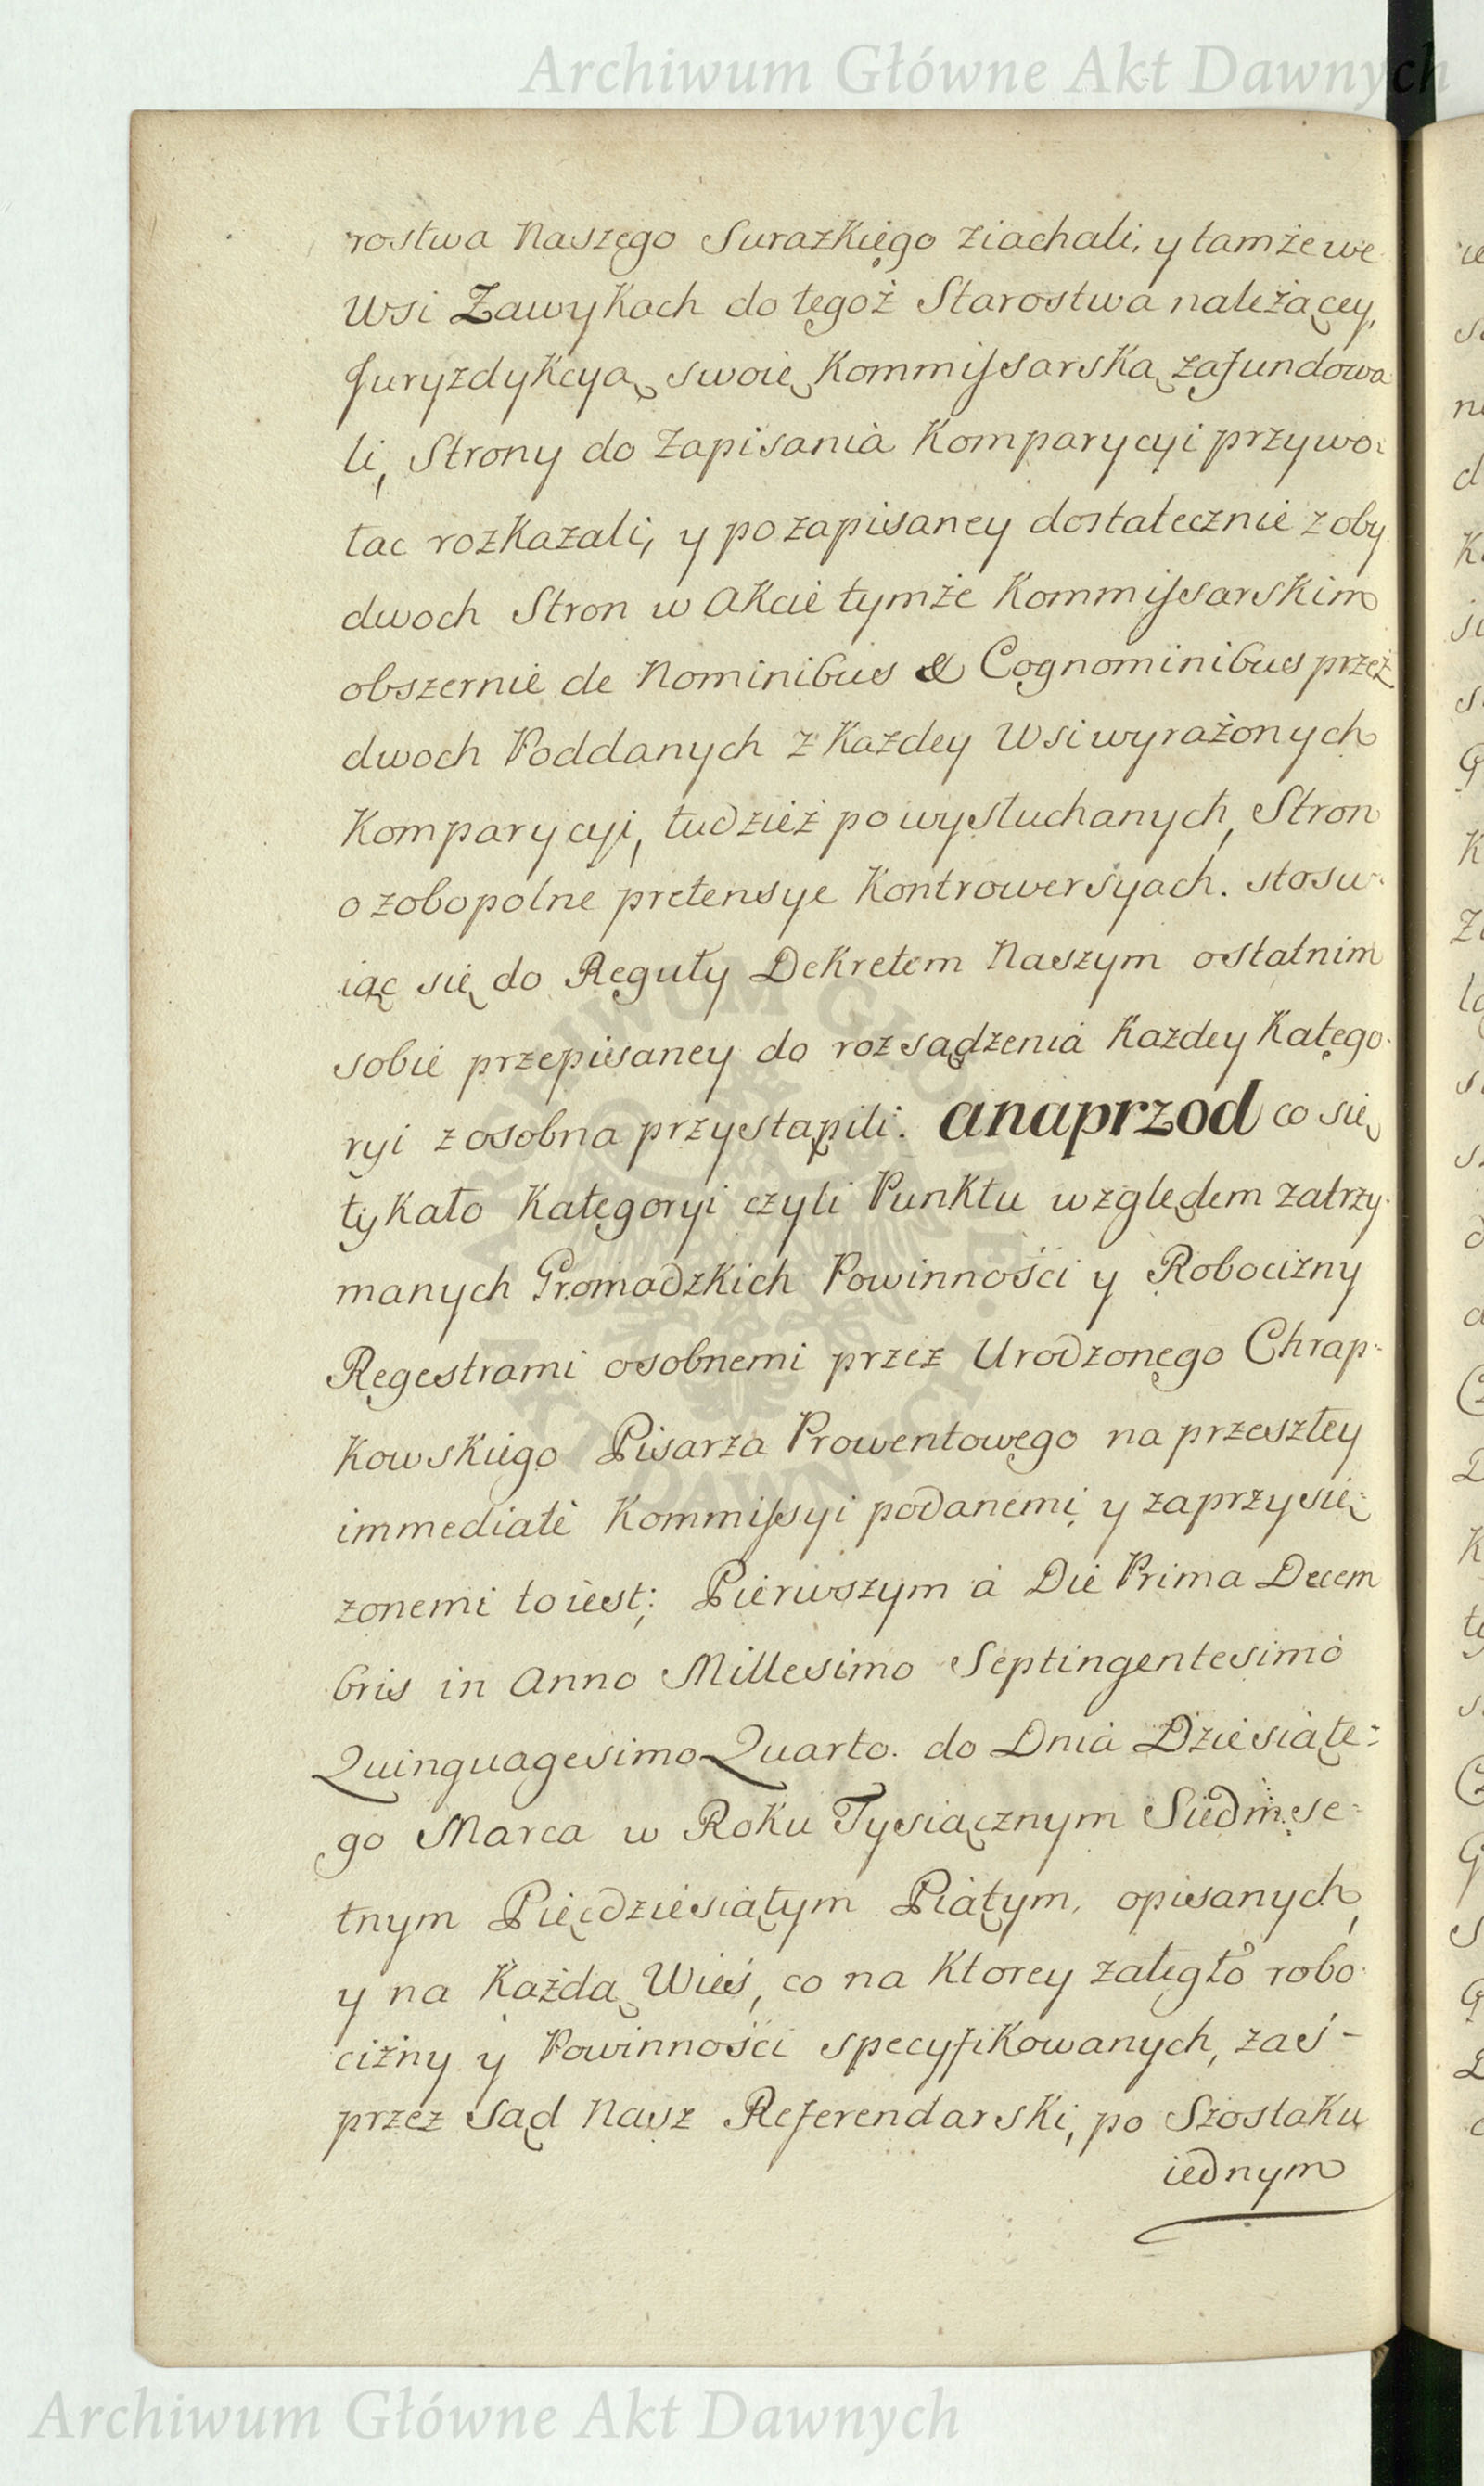 Archiwum Główne Akt Dawnych
rostwa Naszego Surazkiego ziachali, y tamże we
Wsi Zawykach do tegoż Starostwa należącey,
Juryzdykcyą swoię Kommissarską zafundowa
li, Strony do Zapisania Komparycyi przywo-
łac rozkazali, y po zapisaney dostatecznie z oby
dwoch Stron w Akcie tymże Kommissarskim
obszernie de Nominibus & Cognominibus przez
dwoch Poddanych z Każdey Wsi wyrażonych
Komparycyi, tudzież po wysłuchanych, Stron
o zobopolne pretensye Kontrowersyach. stosu-
iąc się do Reguły Dekretem Naszym ostatnim
sobie przepisaney do rozsądzenia Każdey Katego-
ryi z osobna przystąpili. anaprzod co się
tykało Kategoryi czyli Punktu względem zatrzy-
manych Gromadzkich Powinności y Robocizny
Regestrami osobnemi przez Urodzonego Chrap-
kowskiego Pisarza Prowentowego na przeszłey
immediatè Kommissyi podanemi y zaprzysię-
zonemi to iest; Pierwszym à Die Prima Decem
bris in Anno Millesimo Septingentesimo
Quinquagesimo Quarto. do Dnia Dziesiąte=
go Marca w Roku Tysiącznym Siedmse=
tnym Pięćdziesiątym Piątym, opisanych,
y na Każdą Wieś, co na Ktorey zaległo robo-
cizny y Powinności specyfikowanych, zaś-
przez Sąd Nasz Referendarski, po Szostaku
iednym
ARCHIWUM GŁÓWNE AKT DAWNYCH
Archiwum Główne Akt Dawnych